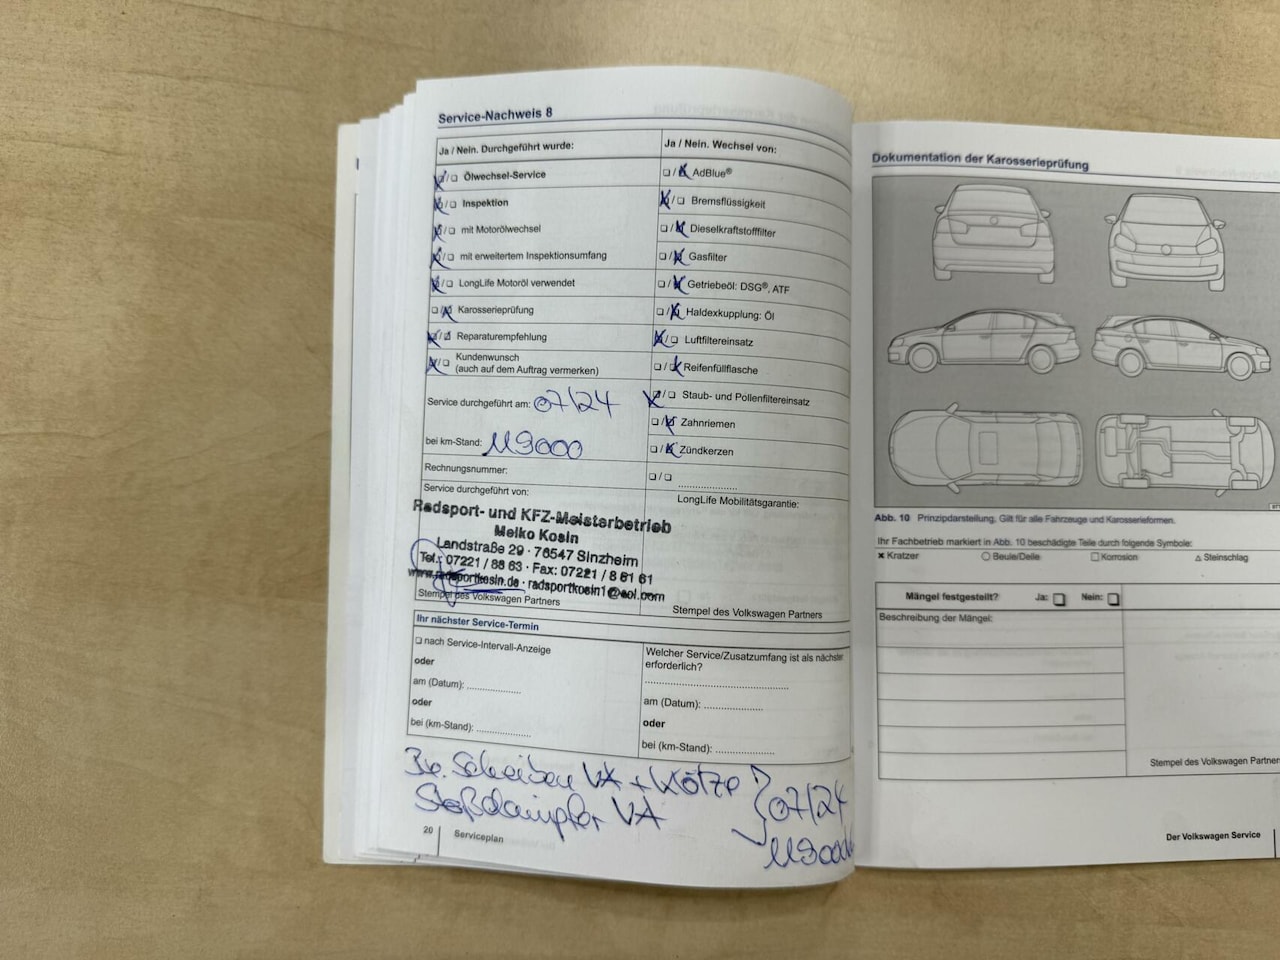 Service-Nachweis 8
Ja / Nein. Durchgeführt wurde:
☒/☐ Ölwechsel-Service
☒/☐ Inspektion
☒/☐ mit Motorölwechsel
☒/☐ mit erweitertem Inspektionsumfang
☒/☐ LongLife Motoröl verwendet
☐/☒ Karosserieprüfung
☒/☐ Reparaturempfehlung
☒/☐ Kundenwunsch
(auch auf dem Auftrag vermerken)
Service durchgeführt am: 07/24
bei km-Stand: 119000
Rechnungsnummer:
Service durchgeführt von:
Radsport- und KFZ-Meisterbetrieb
Meiko Kosin
Landstraße 29 · 76547 Sinzheim
Tel.: 07221 / 88 63 · Fax: 07221 / 8 61 61
www.radsportkosin.de · radsportkosin1@aol.com
Stempel des Volkswagen Partners
Ja / Nein. Wechsel von:
☐/☒ AdBlue®
☒/☐ Bremsflüssigkeit
☐/☒ Dieselkraftstofffilter
☐/☒ Gasfilter
☐/☒ Getriebeöl: DSG®, ATF
☐/☒ Haldexkupplung: Öl
☒/☐ Luftfiltereinsatz
☐/☒ Reifenfüllflasche
☒/☐ Staub- und Pollenfiltereinsatz
☐/☒ Zahnriemen
☐/☒ Zündkerzen
☐/☐ ....................
LongLife Mobilitätsgarantie:
Stempel des Volkswagen Partners
Ihr nächster Service-Termin
☐ nach Service-Intervall-Anzeige
oder
am (Datum): ..................
oder
bei (km-Stand): ..................
Welcher Service/Zusatzumfang ist als nächster
erforderlich?
..................................................
am (Datum): ....................
oder
bei (km-Stand): ....................
Scheiben VA + Klötze
Stoßdämpfer VA
07/24
20 Serviceplan
Dokumentation der Karosserieprüfung
Abb. 10 Prinzipdarstellung. Gilt für alle Fahrzeuge und Karosserieformen.
Ihr Fachbetrieb markiert in Abb. 10 beschädigte Teile durch folgende Symbole:
✖ Kratzer ○ Beule/Delle ☐ Korrosion △ Steinschlag
Mängel festgestellt? Ja: ☐ Nein: ☐
Beschreibung der Mängel:
Stempel des Volkswagen Partners
Der Volkswagen Service